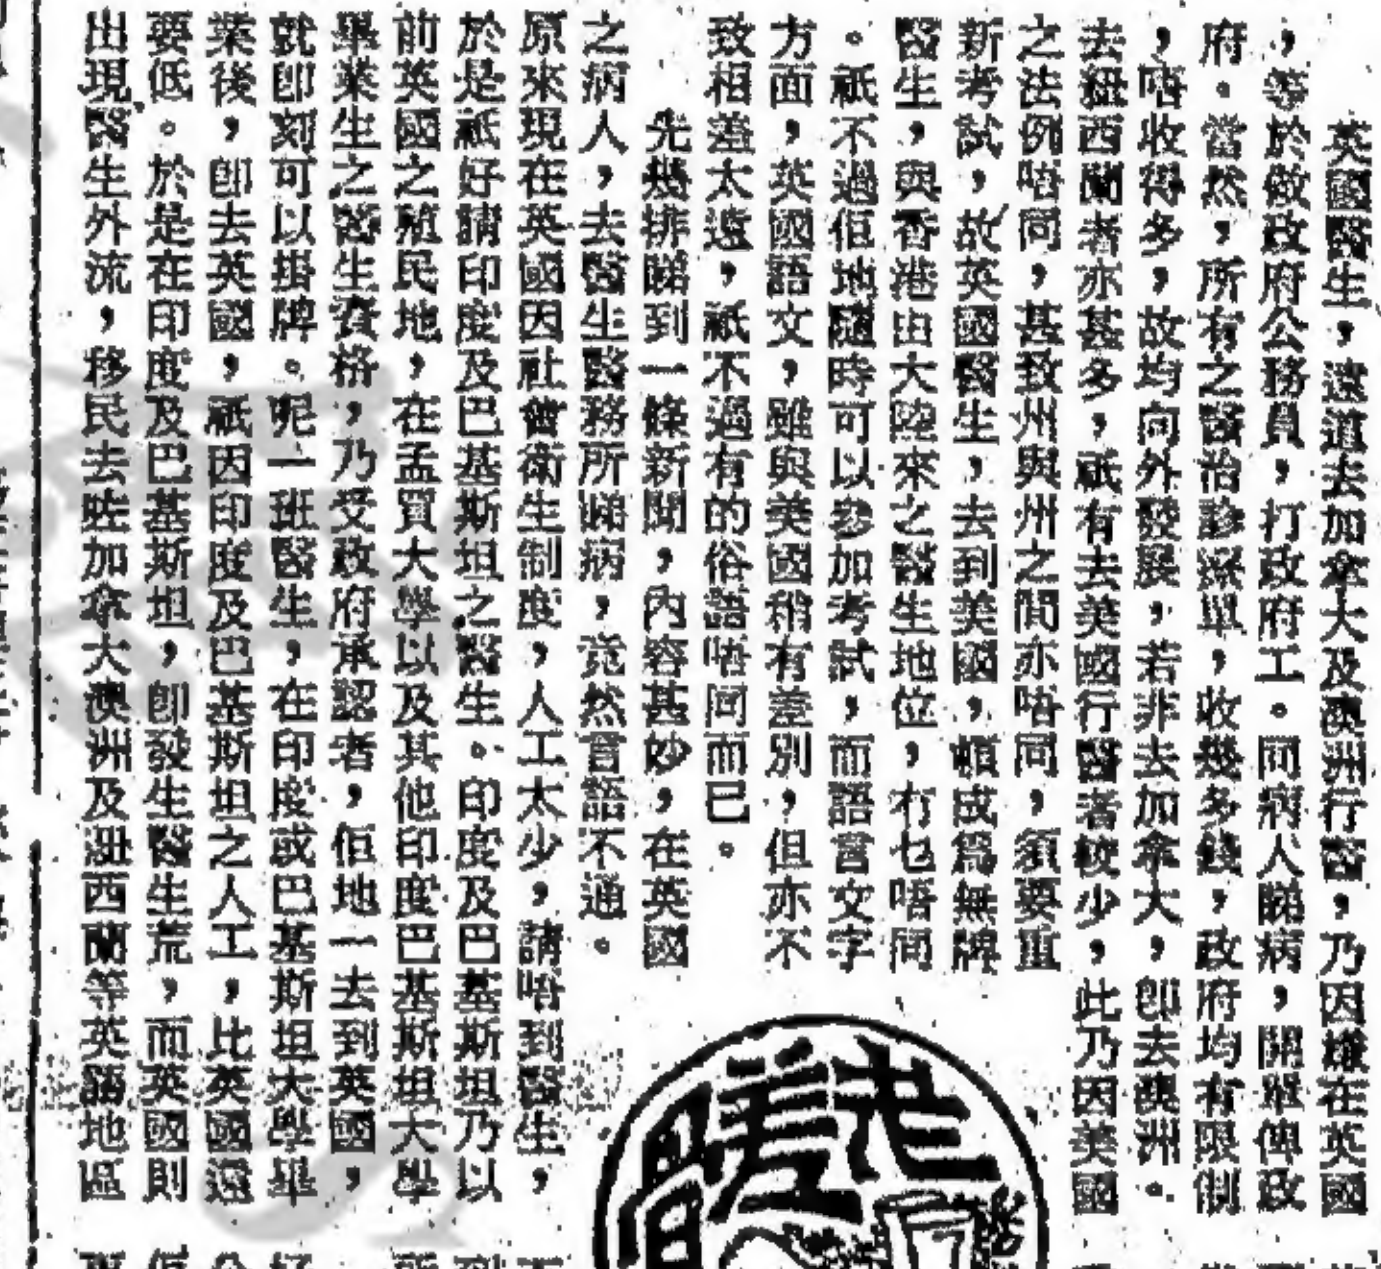 英國醫生，遠道去加拿大及澳洲行醫，乃因嫌在英國
，等於做政府公務員，打政府工。同病人睇病，開單俾政
府。當然，所有之醫治診療單，收幾多錢，政府均有限制
，唔收得多，故均向外發展，若非去加拿大，卽去澳洲。
去紐西蘭者亦甚多，祇有去美國行醫者較少，此乃因美國
之法例唔同，甚致州與州之間亦唔同，須要重
新考試，故英國醫生，去到美國，頓成爲無牌
醫生，與香港由大陸來之醫生地位，冇乜唔同
。祇不過佢地隨時可以參加考試，而語言文字
方面，英國語文，雖與美國稍有差別，但亦不
致相差太遠，祇不過有的俗語唔同而已。
先幾排睇到一條新聞，內容甚妙，在英國
之病人，去醫生醫務所睇病，竟然言語不通。
原來現在英國因社會衛生制度，人工太少，請唔到醫生，
於是祇好請印度及巴基斯坦之醫生。印度及巴基斯坦乃以
前英國之殖民地，在孟買大學以及其他印度巴基斯坦大學
畢業生之醫生資格，乃受政府承認者，佢地一去到英國，
就卽刻可以掛牌。呢一班醫生，在印度或巴基斯坦大學畢
業後，卽去英國，祇因印度及巴基斯坦之人工，比英國還
要低。於是在印度及巴基斯坦，卽發生醫生荒，而英國則
出現醫生外流，移民去咗加拿大澳洲及紐西蘭等英語地區